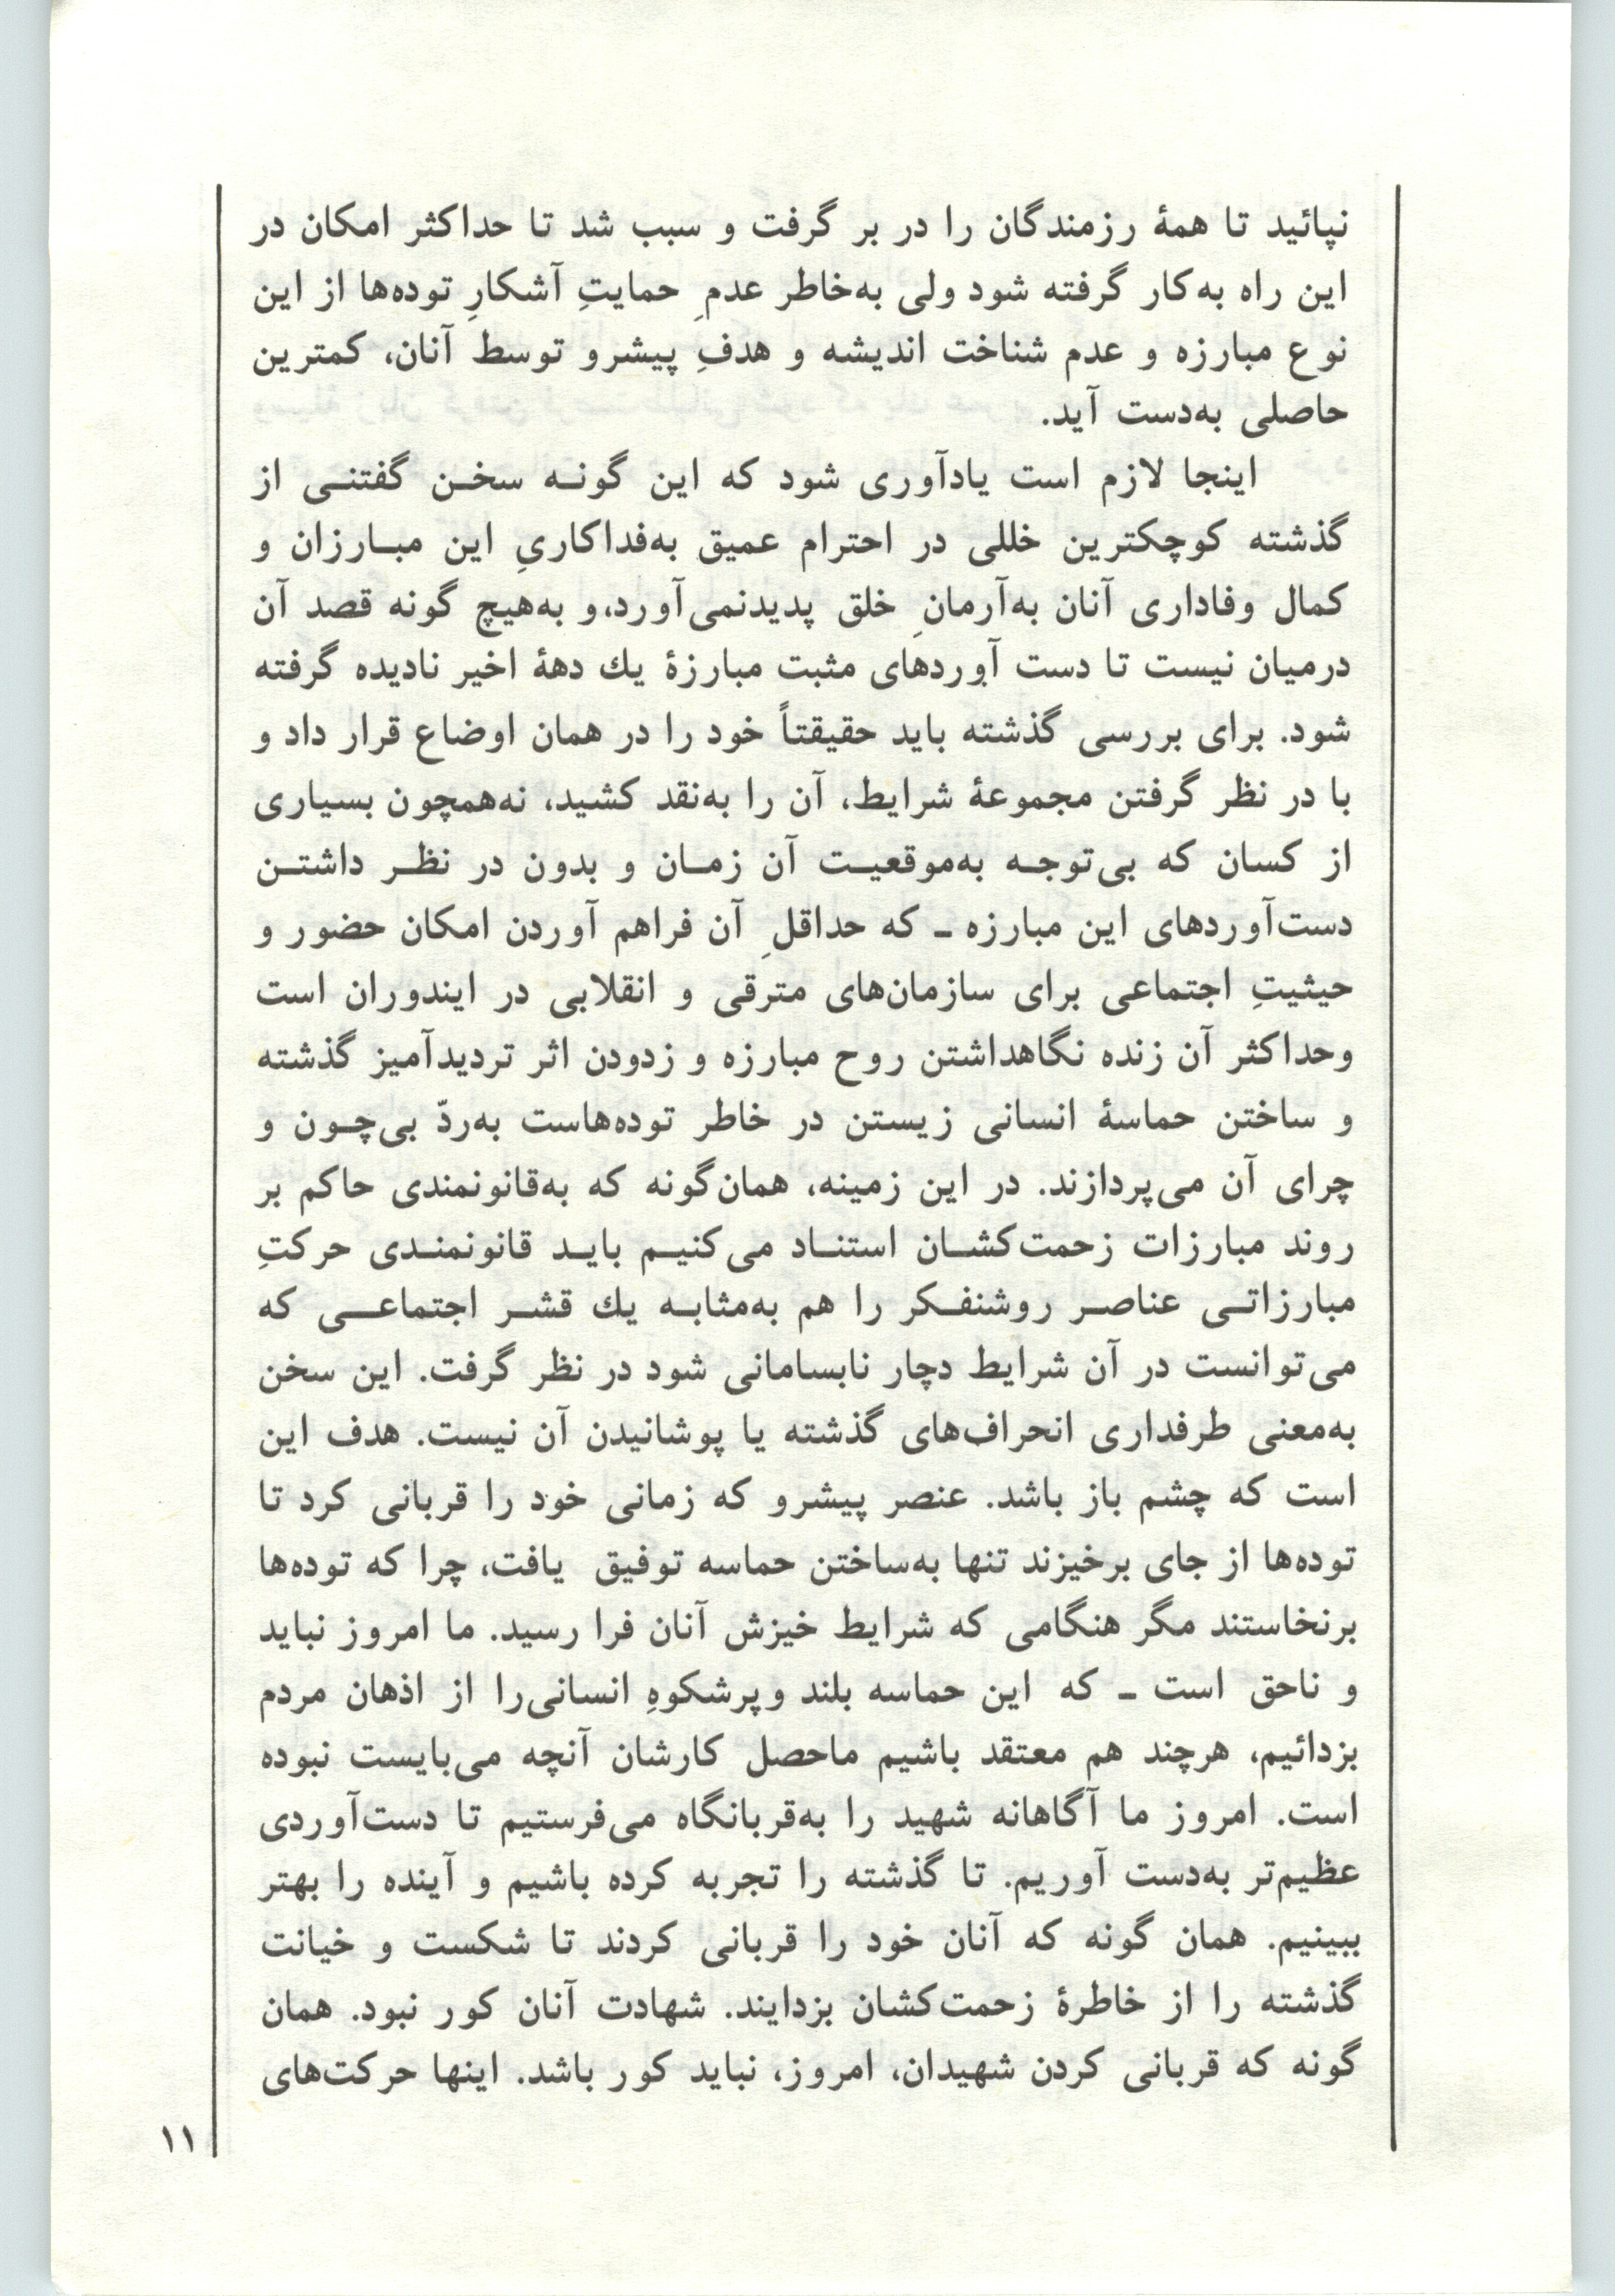 نپائید تا همهٔ رزمندگان را در بر گرفت و سبب شد تا حداکثر امکان در
این راه به‌کار گرفته شود ولی به‌خاطر عدمِ حمایتِ آشکارِ توده‌ها از این
نوع مبارزه و عدم شناخت اندیشه و هدفِ پیشرو توسط آنان، کمترین
حاصلی به‌دست آید.
اینجا لازم است یادآوری شود که این گونه سخن گفتنی از
گذشته کوچکترین خللی در احترام عمیق به‌فداکاریِ این مبارزان و
کمال وفاداری آنان به‌آرمانِ خلق پدیدنمی‌آورد،و به‌هیچ گونه قصد آن
درمیان نیست تا دست آوردهای مثبت مبارزهٔ یك دههٔ اخیر نادیده گرفته
شود. برای بررسی گذشته باید حقیقتاً خود را در همان اوضاع قرار داد و
با در نظر گرفتن مجموعهٔ شرایط، آن را به‌نقد کشید، نه‌همچون بسیاری
از کسان که بی‌توجه به‌موقعیت آن زمان و بدون در نظر داشتن
دست‌آوردهای این مبارزه ـ که حداقلِ آن فراهم آوردن امکان حضور و
حیثیتِ اجتماعی برای سازمان‌های مترقی و انقلابی در ایندوران است
وحداکثر آن زنده نگاهداشتن روح مبارزه و زدودن اثر تردیدآمیز گذشته
و ساختن حماسهٔ انسانی زیستن در خاطر توده‌هاست به‌ردّ بی‌چون و
چرای آن می‌پردازند. در این زمینه، همان‌گونه که به‌قانونمندی حاکم بر
روند مبارزات زحمت‌کشان استناد می‌کنیم باید قانونمندی حرکتِ
مبارزاتی عناصر روشنفکر را هم به‌مثابه یك قشر اجتماعی که
می‌توانست در آن شرایط دچار نابسامانی شود در نظر گرفت. این سخن
به‌معنی طرفداری انحراف‌های گذشته یا پوشانیدن آن نیست. هدف این
است که چشم باز باشد. عنصر پیشرو که زمانی خود را قربانی کرد تا
توده‌ها از جای برخیزند تنها به‌ساختن حماسه توفیق یافت، چرا که توده‌ها
برنخاستند مگر هنگامی که شرایط خیزش آنان فرا رسید. ما امروز نباید
و ناحق است ـ که این حماسه بلند وپرشکوهِ انسانی‌را از اذهان مردم
بزدائیم، هرچند هم معتقد باشیم ماحصل کارشان آنچه می‌بایست نبوده
است. امروز ما آگاهانه شهید را به‌قربانگاه می‌فرستیم تا دست‌آوردی
عظیم‌تر به‌دست آوریم. تا گذشته را تجربه کرده باشیم و آینده را بهتر
ببینیم. همان گونه که آنان خود را قربانی کردند تا شکست و خیانت
گذشته را از خاطرهٔ زحمت‌کشان بزدایند. شهادت آنان کور نبود. همان
گونه که قربانی کردن شهیدان، امروز، نباید کور باشد. اینها حرکت‌های
۱۱